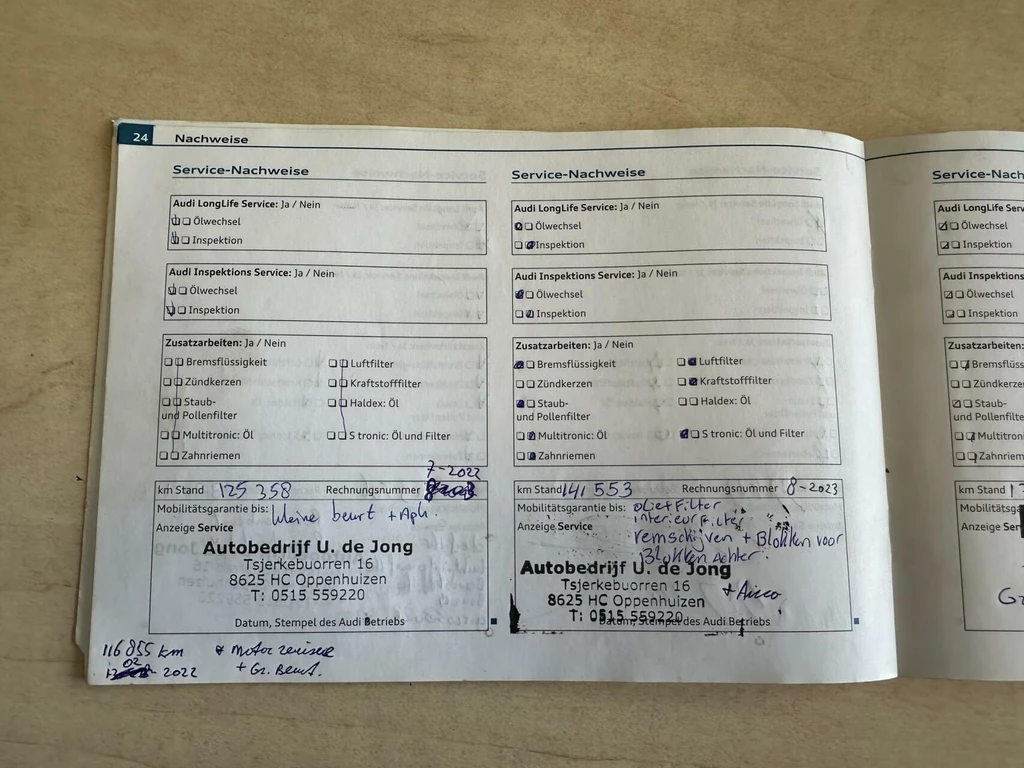 24 Nachweise
Service-Nachweise
Audi LongLife Service: Ja / Nein
Ölwechsel
Inspektion
Audi Inspektions Service: Ja / Nein
Ölwechsel
Inspektion
Zusatzarbeiten: Ja / Nein
Bremsflüssigkeit Luftfilter
Zündkerzen Kraftstofffilter
Staub- Haldex: Öl
und Pollenfilter
Multitronic: Öl S tronic: Öl und Filter
Zahnriemen
7-2022
km Stand 125 358 Rechnungsnummer
Mobilitätsgarantie bis: kleine beurt + Apk.
Anzeige Service
Autobedrijf U. de Jong
Tsjerkebuorren 16
8625 HC Oppenhuizen
T: 0515 559220
Datum, Stempel des Audi Betriebs
116 855 km * Motor revisie
02 2022 + Gr. Beurt.
Service-Nachweise
Audi LongLife Service: Ja / Nein
Ölwechsel
Inspektion
Audi Inspektions Service: Ja / Nein
Ölwechsel
Inspektion
Zusatzarbeiten: Ja / Nein
Bremsflüssigkeit Luftfilter
Zündkerzen Kraftstofffilter
Staub- Haldex: Öl
und Pollenfilter
Multitronic: Öl S tronic: Öl und Filter
Zahnriemen
km Stand 141 553 Rechnungsnummer 8-2023
Mobilitätsgarantie bis: olie+Filter
Anzeige Service interieurfilter
remschijven + Blokken voor
Blokken Achter.
Autobedrijf U. de Jong
Tsjerkebuorren 16 + Airco
8625 HC Oppenhuizen
T: 0515 559220
Datum, Stempel des Audi Betriebs
Service-Nach
Audi LongLife Serv
Ölwechsel
Inspektion
Audi Inspektions
Ölwechsel
Inspektion
Zusatzarbeiten:
Bremsflüss
Zündkerze
Staub-
und Pollenfilte
Multitroni
Zahnriem
km Stand 1
Mobilitätsga
Anzeige Ser
G